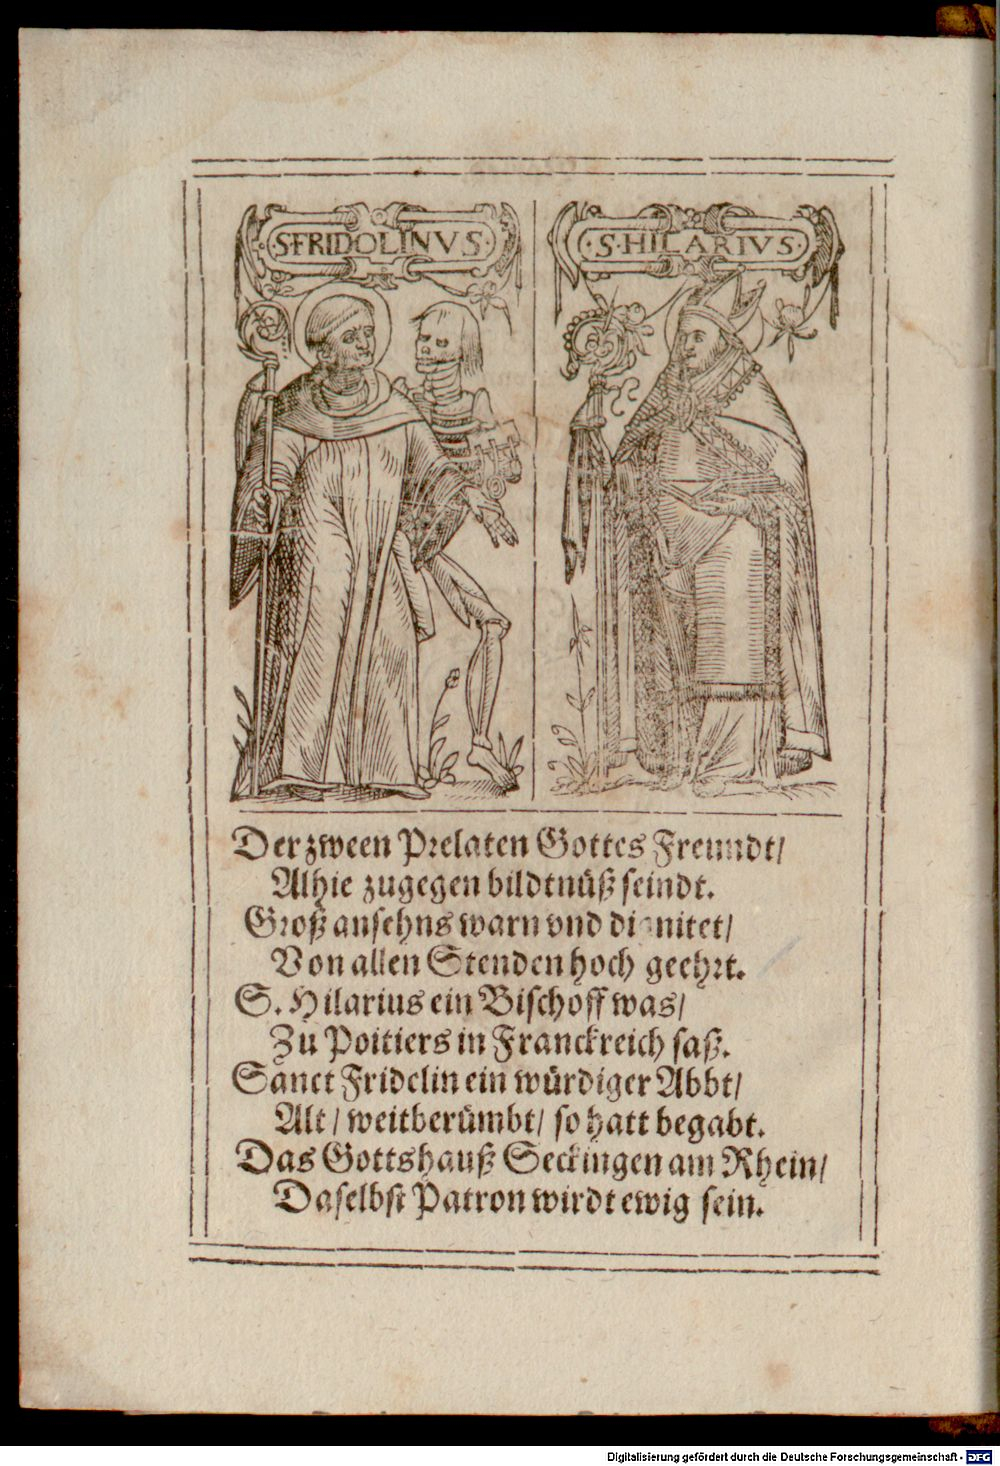 S FRIDOLINVS·
·S·HILARIVS·
Der zween Prelaten Gottes Freundt/
Alhie zugegen bildtnüß seindt.
Groß ansehns warn vnd dignitet/
Von allen Stenden hoch geehrt.
S. Hilarius ein Bischoff was/
Zu Poitiers in Franckreich saß.
Sanct Fridelin ein würdiger Abbt/
Alt/ weitberümbt/ so hatt begabt.
Das Gottshauß Seckingen am Rhein/
Daselbst Patron wirdt ewig sein.
Digitalisierung gefördert durch die Deutsche Forschungsgemeinschaft - DFG